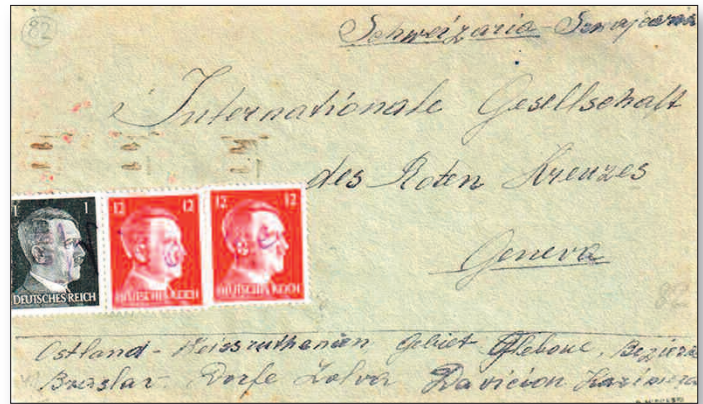 82
Schweizaria - Szwajcaria
Internationale Gesellschaft
des Roten Kreuzes
Geneva
82
1 1 12 12 12 12
DEUTSCHES REICH DEUTSCHES REICH DEUTSCHES REICH
Ostland - Weissruthenien Gebiet Glebokie, Bezirk
Braslav Dorfe Zolva Davicion Kazimera